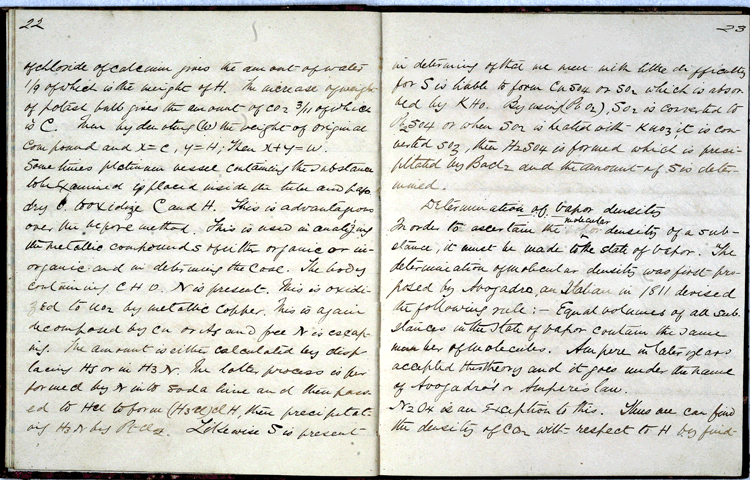 22
of chloride of calcium gives the amount of water
1/9 of which is the weight of H. The increase of weight
of potash bulb gives the amount of CO2 3/11 of which
is C. Then by denoting (W) the weight of original
compound and x = C, y = H; Then x + y = W.
Sometimes platinum vessel containing the substance
to be examined is placed inside the tube and pass
dry O. to oxidize C and H. This is advantageous
over the before method. This is used in analyzing
the metallic compounds of the organic or in-
organic and in determining the Coal. The body
containing C H O. N is present. This is oxidi-
zed to NO2 by metallic copper. This is again
decomposed by Cu or Ag and free N is escap-
ing. The amount is either calculated by disp
lacing Hg or in H3N. The latter process is per
formed by N into soda lime and then pass-
ed to HCl to form (H3N)ClH, then precipitat-
ing H3N by PtCl2. Likewise S is present
23
in determining of that we meet with little difficulty
for S is liable to form CuSO4 or SO2 which is absor
bed by KHO. By using (PbO2), SO2 is converted to
PbSO4 or when SO2 is heated with KNO3 it is con-
verted SO3, then H2SO4 is formed which is preci-
pitated by BaCl2 and the amount of S is deter-
mined.
Determination of vapor density
molecular
In order to ascertain the vapor density of a sub-
stance, it must be made to the state of vapor. The
determination of molecular density was first pro-
posed by Avogadro, an Italian in 1811 devised
the following rule: — Equal volumes of all sub.
stances in the state of vapor contain the same
number of molecules. Ampere in later years
accepted this theory and it goes under the name
of Avogadro's or Ampere's law.
N2Ox is an exception to this. Thus we can find
the density of CO2 with respect to H by find-